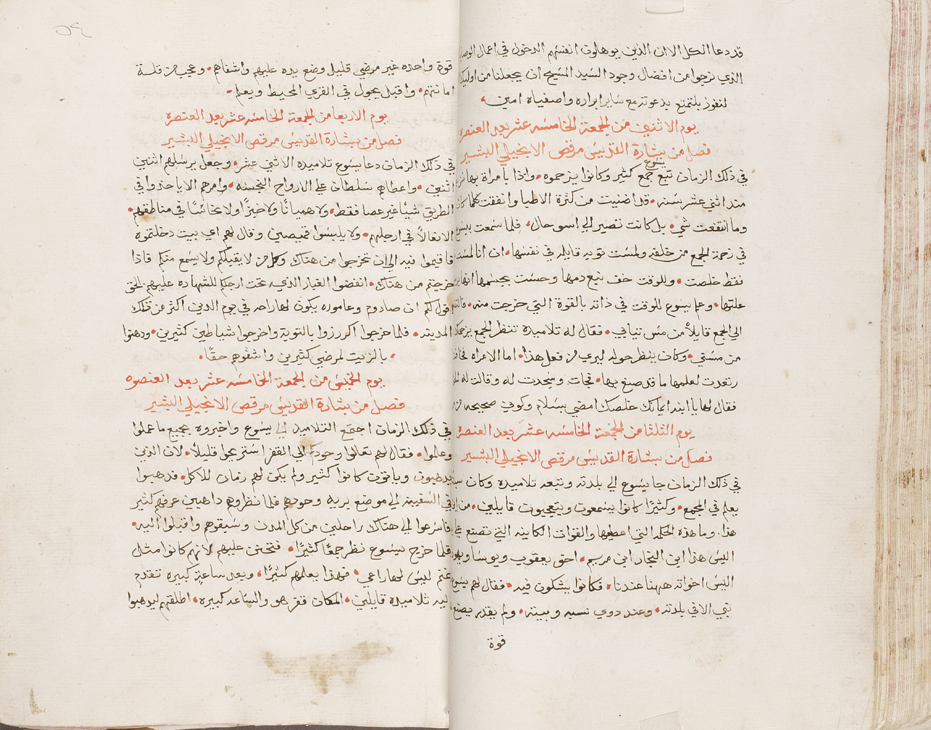 قد دعا الكل الان الذين يوهلون انفسهم الدخول في اعمال
الذي نرجوا من افضال وجود السيد المسيح ان يجعلنا من اوليك
لنفوز بالتمتع بدعوته مع ساير ابراره واصفياه امين
يوم الاثنين من الجمعة الخامسه عشر بعد العنصره
فصل من بشارة القديس مرقص الانجيلي البشير
في ذلك الزمان تبع يسوع جمع كثير وكانوا يزحموه واذا بامراة بها
منذ اثني عشر سنه قد اضنيت من كثرة الاطبا وانفقت كلما كان
وما انتفعت شي بل كانت تصير الي اسوي حال فلما سمعت بيسوع
في زحمة الجمع من خلفه ولمست ثوبه قايله في نفسها ان انا لمست
فقط خلصت وللوقت جف ينبع دمها وحست بجسمها انها
علتها وعلم يسوع للوقت في ذاته بالقوة التي خرجت منه
الي الجمع قايلاً من مس ثيابي فقال له تلاميذه تنظر الجمع يزحمك
من مسني وكان ينظر حوله ليري من فعل هذا اما الامراه
رتعدت لعلمها ما قد صنع بها فجات وسجدت له وقالت له
فقال لها يا ابنه ايمانك خلصك امضي بسلام وكوني صحيحه
يوم الثلثا من الجمعة الخامسه عشر بعد العنصره
فصل من بشارة القديس مرقص الانجيلي البشير
في ذلك الزمان جا يسوع الي بلدته وتبعه تلاميذه وكان
يعلم في المجمع وكثيرًا كانوا يسمعون ويتعجبون قايلين من
هذا وما هذه الحكمه التي اعطيها والقوات الكاينه التي تصنع
اليس هذا ابن النجار ابن مريم اخو يعقوب ويوسا
اليس اخواته ههنا عندنا فكانوا يشكون فيه فقال لهم يسوع
نبي الا في بلدته وعند دوي نسبه وبيته ولم يقدر يصنع
قوة
قوة واحده غير مرضي قليل وضع يده عليهم واشفاهم وعجب من قلة
امانتهم واقبل يجول في القري المحيط ويعلم
يوم الاربعا من الجمعة الخامسه عشر بعد العنصره
فصل من بشارة القديس مرقص الانجيلي البشير
في ذلك الزمان دعا يسوع تلاميذه الاثني عشر وجعل يرسلهم اثنين
اثنين واعطاهم سلطان علي الارواح النجسه وامرهم الا ياخذوا في
الطريق شيًا غير عصا فقط ولا هميانًا ولا خبزًا ولا نحاسًا في مناطقهم
الا نعالاً في ارجلهم ولا يلبسوا قميصين وقال لهم اي بيت دخلتموه
فاقيموا فيه الي ان تخرجوا من هناك وكل من لا يقبلكم ولا يسمع منكم فاذا
خرجتم من هناك انفضوا الغبار الذي تحت ارجلكم للشهاده عليهم الحق
اقول لكم ان صادوم وعاموره يكون لها راحه في يوم الدين اكثر من تلك
المدينه فلما خرجوا اكرزوا بالتوبة واخرجوا شياطين كثيرين ودهنوا
بالزيت لمرضي كثيرين واشفوهم حقًا
يوم الخميس من الجمعة الخامسه عشر بعد العنصره
فصل من بشارة القديس مرقص الانجيلي البشير
في ذلك الزمان اجتمع التلاميذ الي يسوع واخبروه بجميع ما عملوا
وعلموا فقال لهم تعالوا وحدكم الي القفر استريحوا قليلاً لان الذين
يدهبون وياتون كانوا كثير ولم يكن لهم زمان للاكل فدهبوا
في السفينه الي موضع بريه وحودهم فلما نظروهم داهبين عرفهم كثير
فاسرعوا الي هناك راجلين من كل المدن وسبقوهم واقبلوا اليه
فلما خرج يسوع نظر جمعًا كثيرًا فتحنن عليهم لانهم كانوا مثل
غنم ليس لها راعي فبدا يعلمهم كثيرًا وبعد ساعة كبيره تقدم
اليه تلاميذه قايلين المكان قفر هو والساعه كبيره اطلقهم ليدهبوا